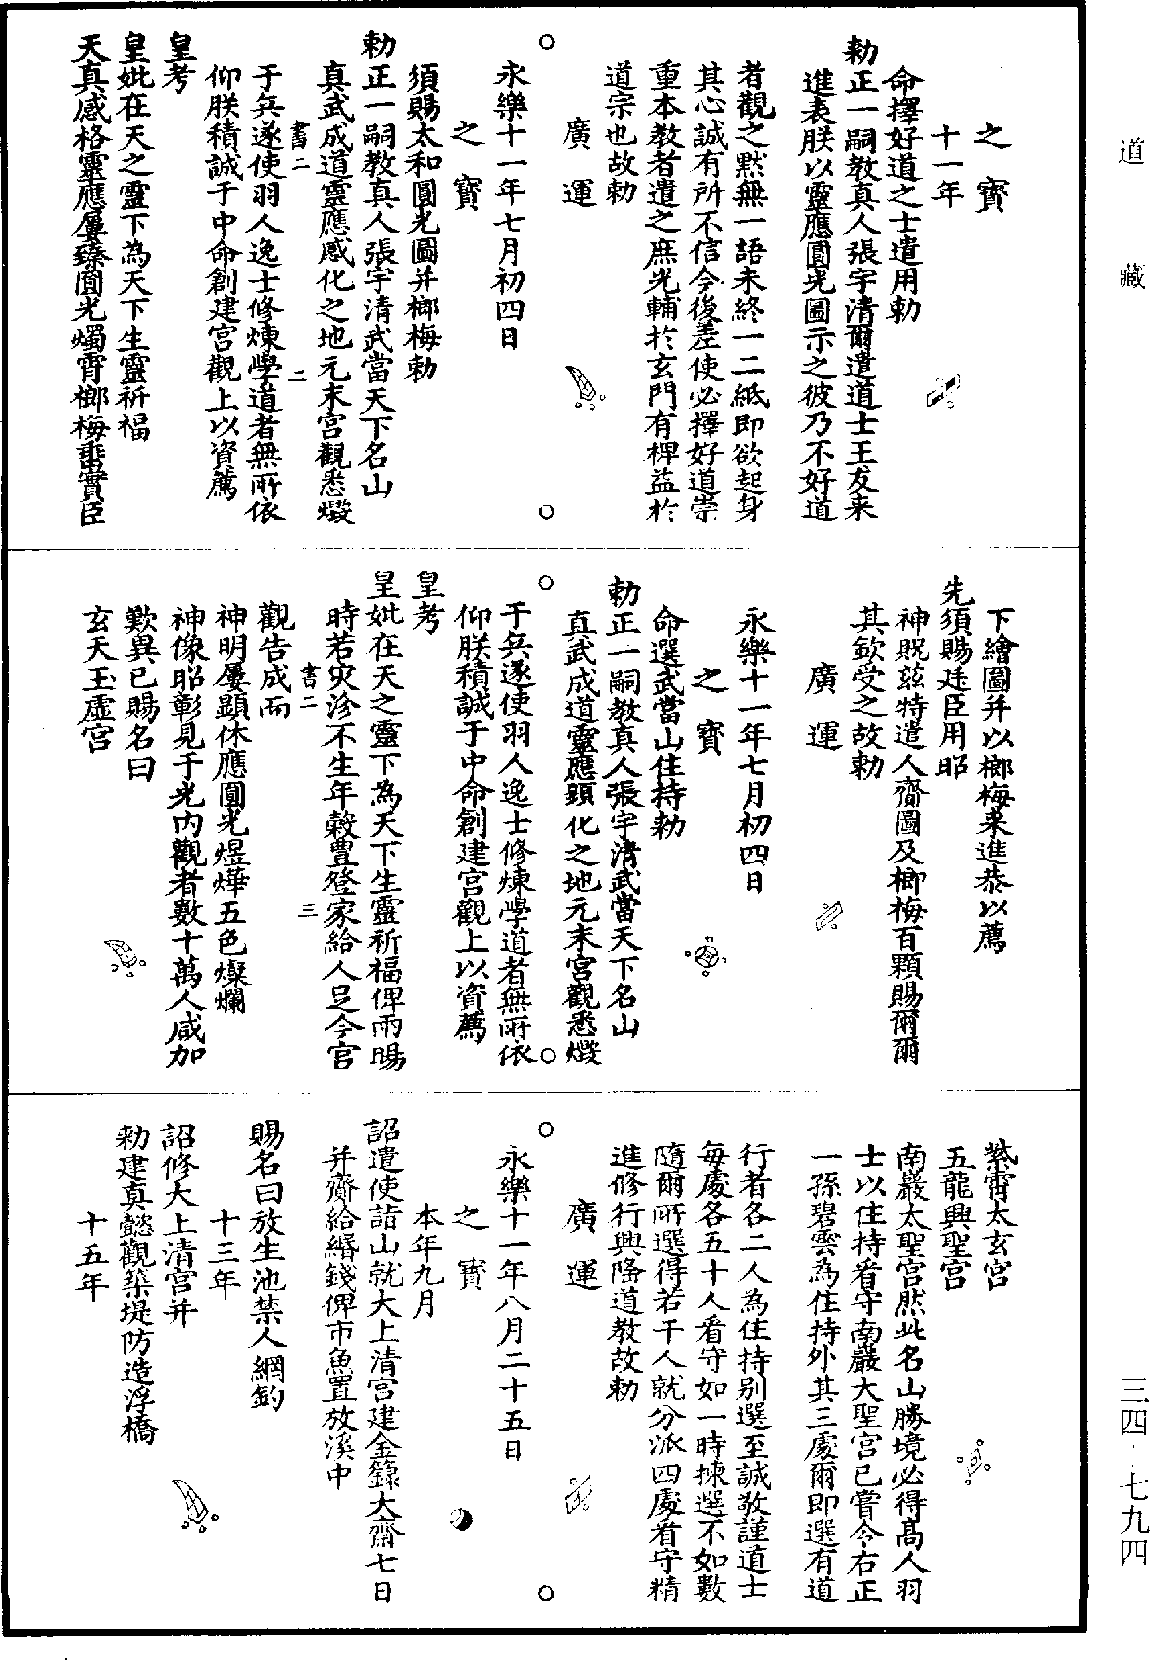 道藏
之寶
十一年
命擇好道之士遣用勅
勅正一嗣教真人張宇清爾遣道士王友来
進表朕以靈應圓光圖示之彼乃不好道
者觀之黙無一語未終一二紙即欲起身
其心誠有所不信今後差使必擇好道崇
重本教者遣之庶光輔於玄門有稗益於
道宗也故勅
廣運
○　○
永樂十一年七月初四日
之寶
須賜太和圓光圖并榔梅勅
勅正一嗣教真人張宇清武當天下名山
真武成道靈應感化之地元末宫觀悉燬
書二　二
于兵遂使羽人逸士修煉學道者無所依
仰朕積誠于中命創建宫觀上以資薦
皇考
皇妣在天之靈下為天下生靈祈福
天真感格靈應屢臻圓光燭霄榔梅垂實臣
下繪圖并以榔梅来進恭以薦
先須賜廷臣用昭
神貺兹特遣人齎圖及榔梅百顆賜爾爾
其欽受之故勅
廣運
永樂十一年七月初四日
之寶
命選武當山住持勅
勅正一嗣教真人張宇清武當天下名山
真武成道靈應顕化之地元末宫觀悉燬
○　○
于兵遂使羽人逸士修煉學道者無所依
仰朕積誠于中命創建宫觀上以資薦
皇考
皇妣在天之靈下為天下生靈祈福俾雨暘
時若灾沴不生年穀豊登家給人足今宫
書二　三
觀告成而
神明屢顯休應圓光煜燁五色燦爛
神像昭彰見于光内觀者數十萬人咸加
歎異已賜名曰
玄天玉虚宫
紫霄太玄宫
五龍興聖宫
南巖太聖宫然此名山勝境必得髙人羽
士以住持看守南巖大聖宫已嘗今右正
一孫碧雲為住持外其三處爾即選有道
行者各二人為住持别選至誠敬謹道士
毎處各五十人看守如一時揀選不如數
隨爾所選得若干人就分派四處看守精
進修行興隆道教故勅
廣運
○　○
永樂十一年八月二十五日
之寶
本年九月
詔遣使詣山就大上清宫建金籙大齋七日
并齎給緡錢俾市魚置放溪中
賜名曰放生池禁人網釣
十三年
詔修大上清宫并
勅建真懿觀築堤防造浮橋
十五年
三四·七九四